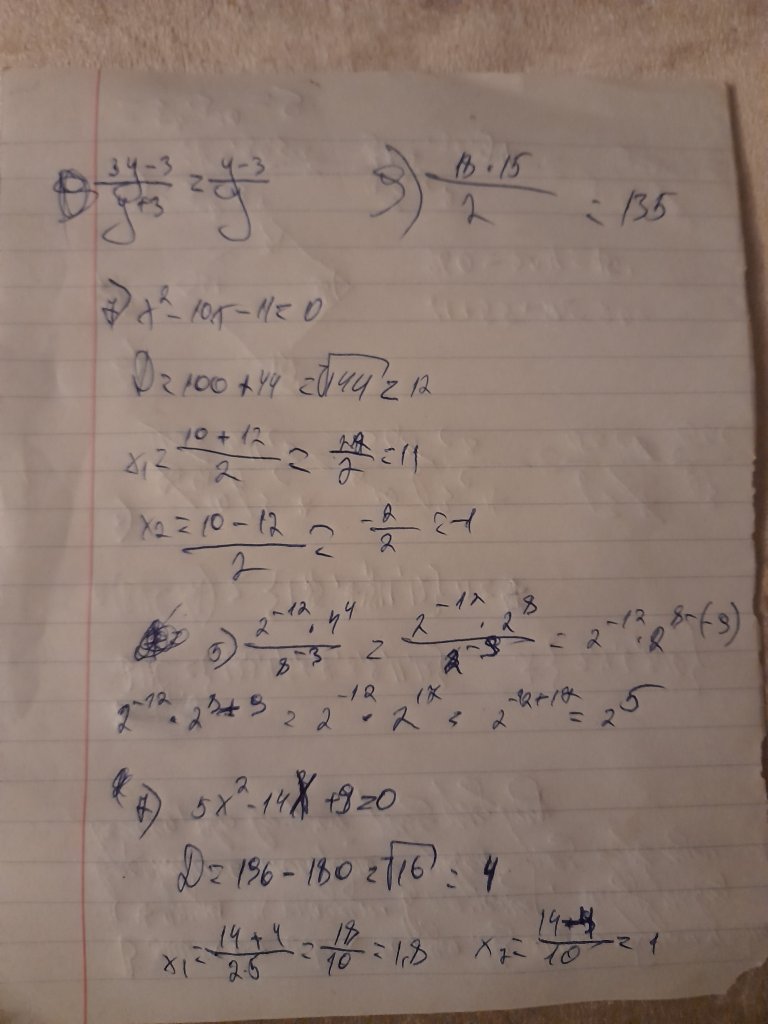 (3y-3)/(y+3) = (y-3)/y
9) (18·15)/2 = 135
7) x² - 10x - 11 = 0
D = 100 + 44 = √144 = 12
x₁ = (10 + 12)/2 = 22/2 = 11
x₂ = (10 - 12)/2 = -2/2 = -1
5) (2⁻¹²·4⁴)/8⁻³ = (2⁻¹²·2⁸)/2⁻⁹ = 2⁻¹²·2⁸⁻⁽⁻⁹⁾
2⁻¹²·2⁸⁺⁹ = 2⁻¹²·2¹⁷ = 2⁻¹²⁺¹⁷ = 2⁵
7) 5x² - 14x + 9 = 0
D = 196 - 180 = √16 = 4
x₁ = (14 + 4)/(2·5) = 18/10 = 1,8 x₂ = (14-4)/10 = 1